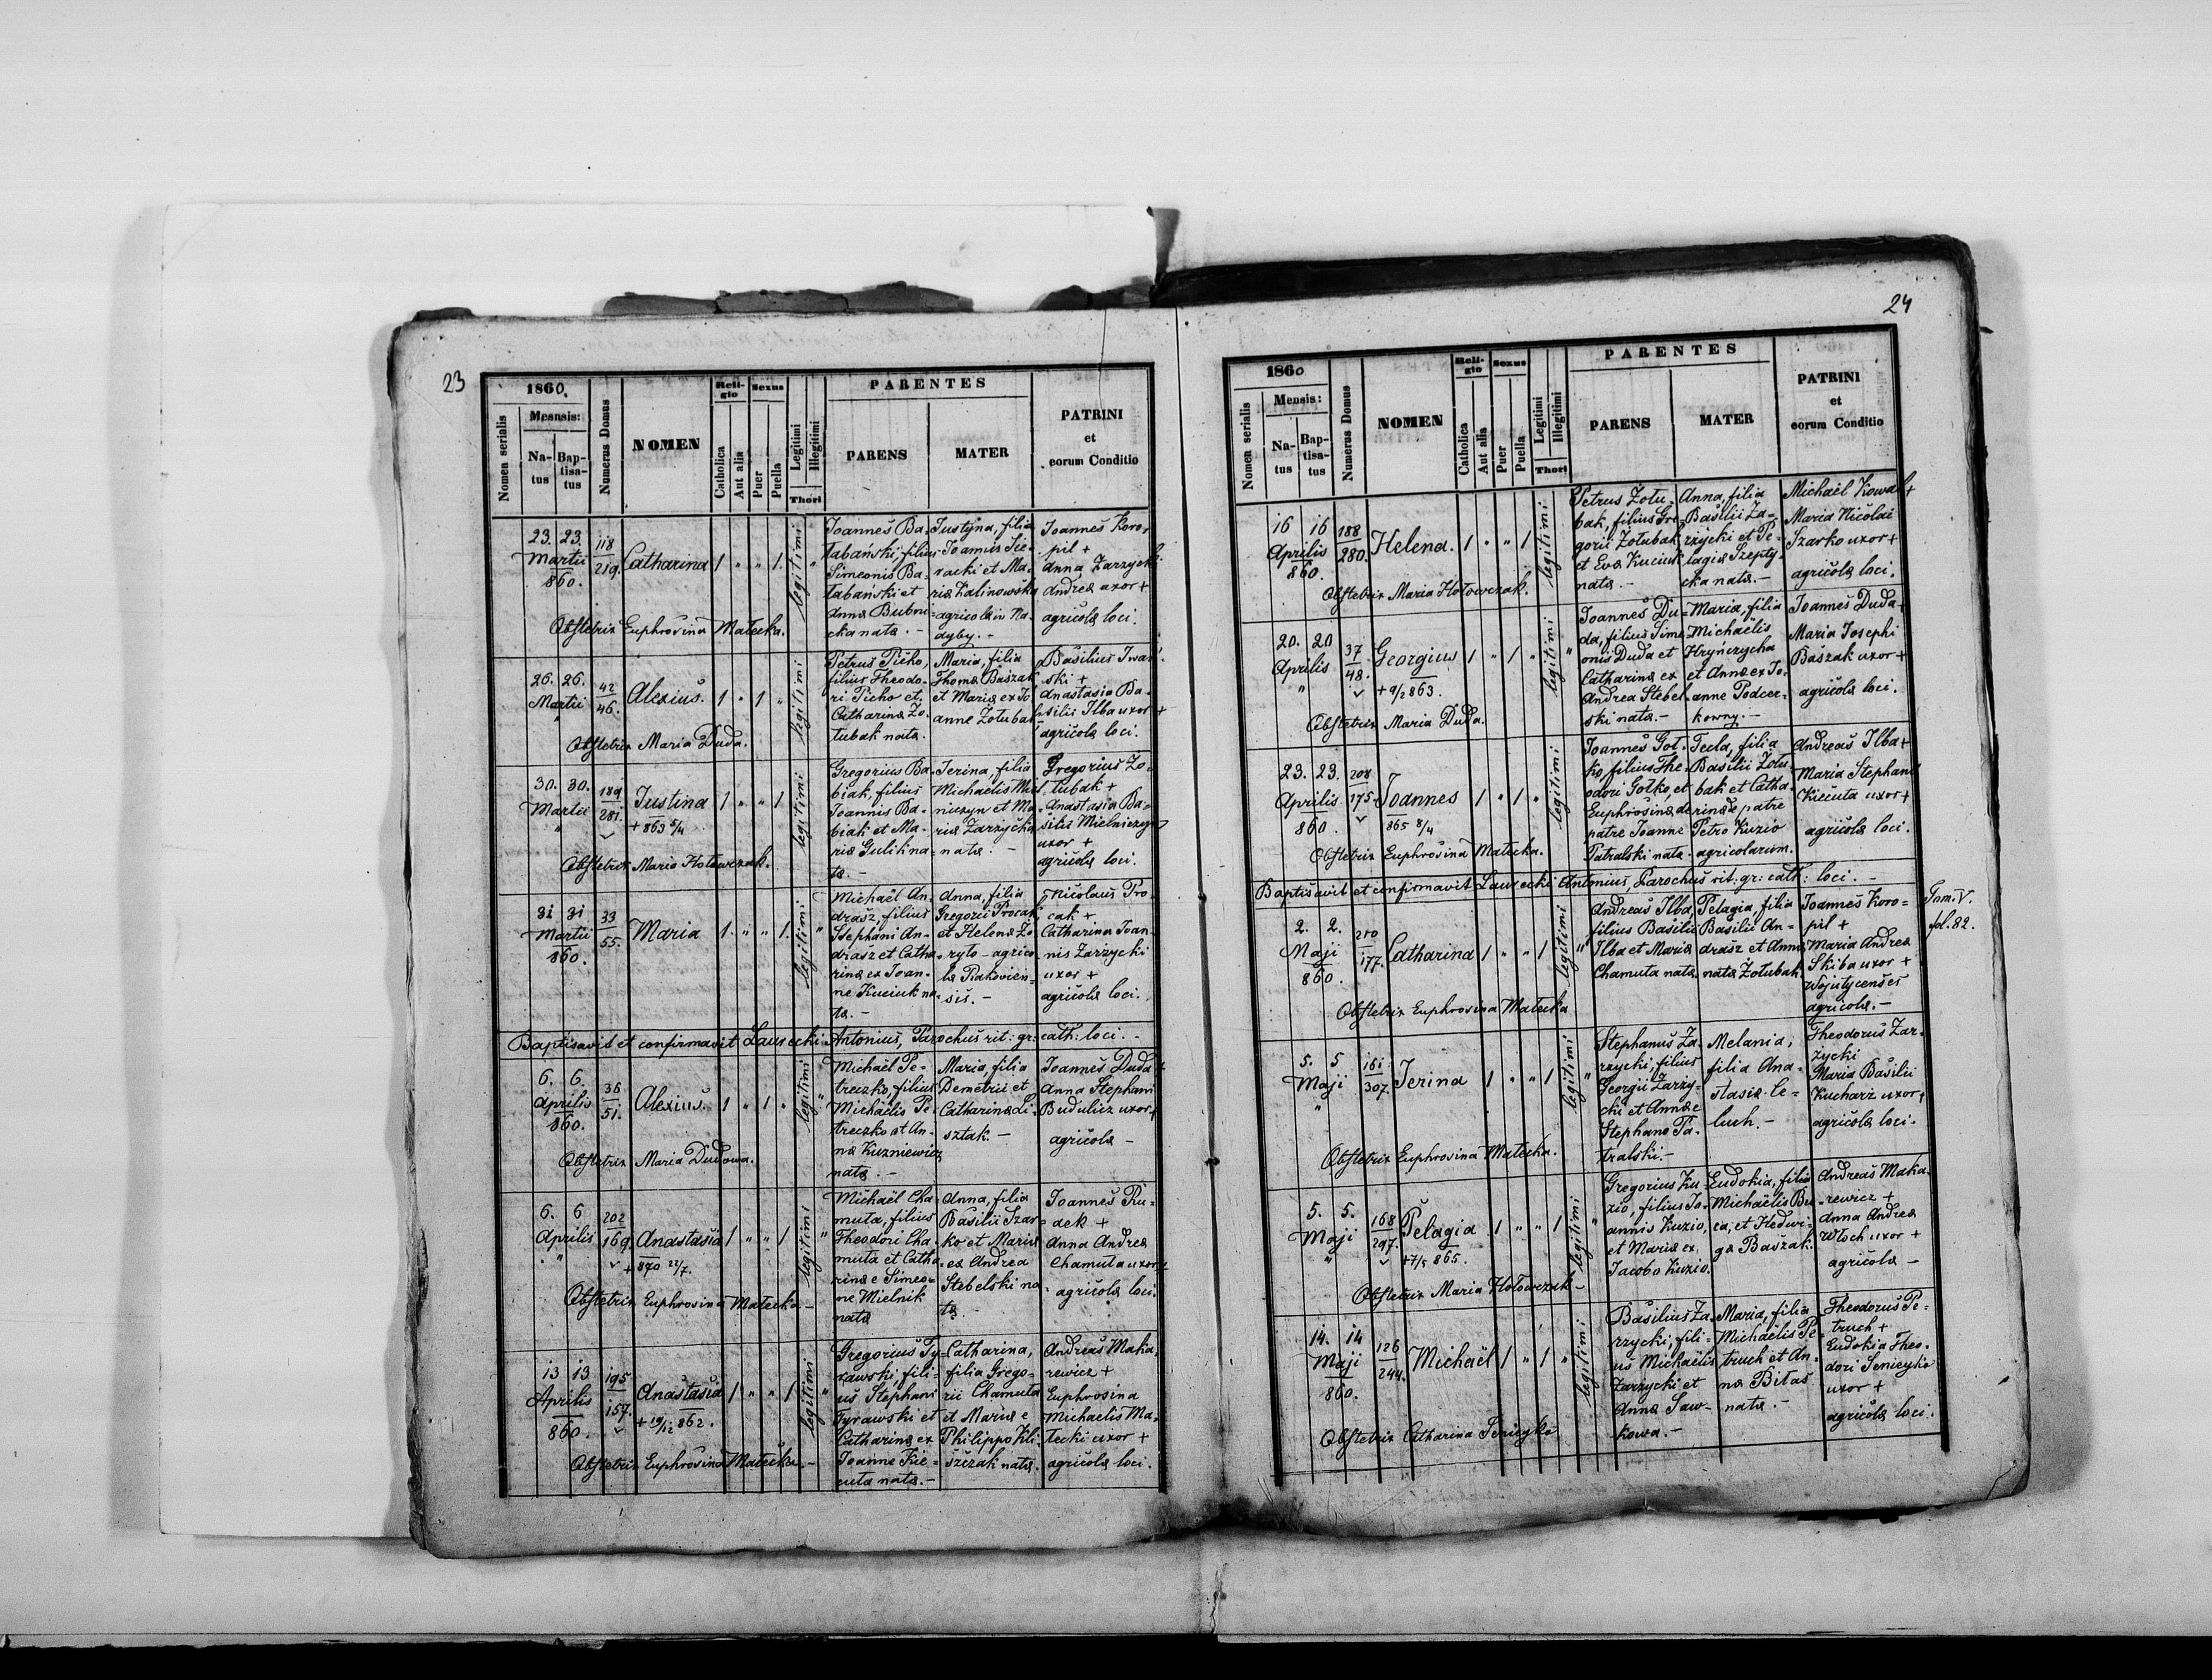 23
1860.
Mesnsis:
Nomen serialis
Na-
tus
Bap-
tisa-
tus
Numerus Domus
NOMEN
Reli-
gio
Catholica
Aut alia
Sexus
Puer
Puella
Legitimi
Illegitimi
Thori
PARENTES
PARENS
MATER
PATRINI
et
eorum Conditio
23. 23.
Martii
860.
118
219.
Catharina
1 " " 1.
legitimi
Joannes Ba-
łabański, filius
Simeonis Ba-
łabański et
Anna Bubni-
cka nata. -
Justyna, filia
Joannis Sie-
racki et Ma-
ria Kalinowska
agricola in Na-
dyby. -
Joannes Koro-
pil +
Anna Zarzycki
Andrea uxor +
agricola loci.
Obstetrix Euphrosina Małecka.
26. 26.
Martii
"
42
46.
Alexius.
1 " 1 "
legitimi
Petrus Ticho,
filius Theodo-
ri Ticho et
Catharina Żo-
łubak nata.
Maria, filia
Thoma Baszak
et Maria ex Jo-
anne Żołubak
Basilius Iwań-
ski +
Anastasia Ba-
silii Ilba uxor +
agricola loci.
Obstetrix Maria Duda.
30. 30.
Martii
"
189
281.
Justina
+ 863 5/4
1 " " 1
legitimi
Gregorius Ba-
biak, filius
Joannis Ba-
biak et Ma-
ria Gulik na-
ta. -
Ierina, filia
Michaelis Miel-
niczyn et Ma-
ria Zarzycka
nata. -
Gregorius Żo-
łubak +
Anastasia Ba-
silii Mielniczyn
uxor +
agricola loci.
Obstetrix Maria Hołowczak.
31 31
Martii
860.
33
55.
Maria
1. " " 1.
legitimi
Michaël An-
drasz, filius
Stephani An-
drasz et Catha-
rina ex Joan-
ne Kuciuk na-
ta. -
Anna, filia
Gregorii Procak
et Helena Żo-
ryto - agrico-
la Rakovien-
sis. -
Nicolaus Pro-
cak +
Catharina Joan-
nis Zarzycki
uxor +
agricola loci.
Baptisavit et confirmavit Laurecki Antonius, Parochus rit: gr: cath: loci. -
6. 6.
Aprilis
860.
36
51.
Alexius.
1 " 1 "
legitimi
Michaël Pe-
treczko, filius
Michaëlis Pe-
treczko et An-
na Kuzniewicz
nata. -
Maria, filia
Demetrii et
Catharina Li-
sztak. -
Joannes Duda +
Anna Stephani
Budulicz uxor +
agricola -
Obstetrix Maria Dudowa.
6. 6
Aprilis
"
202
169.
Anastasia
+ 870 22/7.
1 " " 1
legitimi
Michaël Cha-
muta, filius
Theodori Cha-
muta et Catha-
rina e Simeo-
ne Mielnik
nata
Anna, filia
Basilii Szar-
ko et Maria
ex Andrea
Stebelski na-
ta. -
Joannes Ru-
dek +
Anna Andrea
Chamuta uxor +
agricola loci.
Obstetrix Euphrosina Małecka. -
13 13
Aprilis
860.
195
157.
Anastasia
+ 19/12 862.
1 " " 1
legitimi
Gregorius Ty-
rawski, fili-
us Stephani
Tyrawski et
Catharina ex
Joanne Kie-
cuta nata. -
Catharina,
filia Grego-
rii Chamuta
et Maria e
Philippo Kli-
szczak nata.
Andreas Maka-
rewicz +
Euphrosina
Michaelis Ma-
łecki uxor +
agricola loci.
Obstetrix Euphrosina Małecka. -
24
1860
Mensis:
Nomen serialis
Na-
tus
Bap-
tisa-
tus
Numerus Domus
NOMEN
Reli-
gio
Catholica
Aut alia
Sexus
Puer
Puella
Legitimi
Illegitimi
Thori
PARENTES
PARENS
MATER
PATRINI
et
eorum Conditio
16 16
Aprilis
860.
188
280.
Helena.
1 " " 1
legitimi
Petrus Żołu-
bak, filius Gre-
gorii Żołubak
et Eva Kuciuk
nata. -
Anna, filia
Basilii Za-
rzycki et Pe-
lagia Szepty-
cka nata. -
Michaël Kowal +
Maria Nicolai
Szarko uxor +
agricola loci.
Obstetrix Maria Hołowczak.
20. 20
Aprilis
"
37
48.
Georgius
+ 9/2 863.
1 " 1 "
legitimi
Joannes Du-
da, filius Sime-
onis Duda et
Catharina ex
Andrea Stebel-
ski nata. -
Maria, filia
Michaëlis
Hryńczycha
et Anna ex Jo-
anne Podcer-
kowny. -
Joannes Duda +
Maria Josephi
Baszak uxor +
agricola loci.
Obstetrix Maria Duda.
23. 23.
Aprilis
860.
208
175
Joannes
865 8/4
1 " 1 "
legitimi
Joannes Goł-
ko, filius The-
odori Gołko, et
Euphrosina de
patre Joanne
Patralski nata.
Tecla, filia
Basilii Żołu-
bak et Catha-
rina de patre
Petro Kuzio
agricolarum.
Andreas Ilba +
Maria Stephani
Kiecuta uxor +
agricola loci.
Obstetrix Euphrosina Małecka.
Baptisavit et confirmavit Laurecki Antonius, Parochus rit: gr: cath: loci. -
2. 2.
Maji
860.
210
177.
Catharina
1 " " 1
legitimi
Andreas Ilba
filius Basilii
Ilba et Maria
Chamuta nata.
Pelagia, filia
Basilii An-
drasz et Anna
nata Żołubak.
Joannes Koro-
pil +
Maria Andrea
Skiba uxor +
Wojutycenses
agricola. -
Tom. V.
fol. 82.
Obstetrix Euphrosina Małecka
5. 5
Maji
"
161
307.
Ierina
1 " " 1
legitimi
Stephanus Za-
rzycki, filius
Georgii Zarzy-
cki et Anna e
Stephano Pa-
tralski. -
Melania,
filia Ana-
stasia Ce-
luch. -
Theodorus Zar-
zycki
Maria Basilii
Kucharz uxor +
agricola loci.
Obstetrix Euphrosina Małecka.
5. 5.
Maji
"
168
297.
Pelagia
+ 7/5 865.
1 " " 1
legitimi
Gregorius Ku-
zio, filius Jo-
annis Kuzio,
et Maria ex
Jacobo Kuzio.
Eudokia, filia
Michaëlis Bu-
ca, et Hedwi-
ga Baszak.
Andreas Maka-
rewicz +
Anna Andrea
Włoch uxor +
agricola -
Obstetrix Maria Hołowczak -
14. 14
Maji
860.
126
244.
Michaël
1 " 1 "
legitimi
Basilius Za-
rzycki, fili-
us Michaëlis
Zarzycki et
Anna Saw-
kowa. -
Maria, filia
Michaëlis Pe-
truch et An-
na Biłas
nata. -
Theodorus Pe-
truch +
Eudokia Theo-
dori Senicyko
uxor +
agricola loci.
Obstetrix Catharina Senicyko